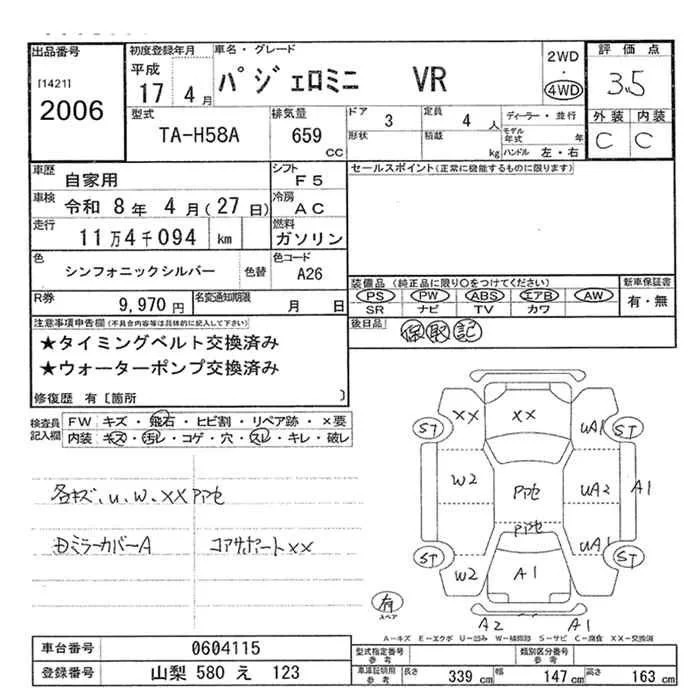 出品番号
[1421]
2006
初度登録年月
平成
17 4 月
車名・グレード
パジェロミニ VR
2WD
・
4WD
評価点
3.5
外装 内装
C C
型式
TA-H58A
排気量
659
CC
ドア
3
定員
4 人
形状
積載
kg
ディーラー・並行
モデル年式 年
ハンドル 左・右
車歴
自家用
シフト
F5
車検
令和 8 年 4 月(27 日)
冷房
AC
走行
11万4千094 km
燃料
ガソリン
色
シンフォニックシルバー
色替
色コード
A26
R券
9,970 円
名変通知期限
月 日
セールスポイント(正常に機能するものに限ります)
装備品 (純正品に限り○をつけてください)
PS PW ABS エアB AW
SR ナビ TV カワ
新車保証書
有・無
後日品
保 取 記
注意事項申告欄(不具合内容等は具体的に記入して下さい)
★タイミングベルト交換済み
★ウォーターポンプ交換済み
修復歴 有〔箇所 〕
検査員
記入欄
FW キズ・飛石・ヒビ割・リペア跡・×要
内装 キズ・汚レ・コゲ・穴・スレ・キレ・破レ
各キズ、u、w、XX Pアセ
田ミラーカバーA
コアサポートXX
XX
XX
ST
UA1
ST
W2
Pアセ
UA2
A1
Pアセ
UA1
ST
ST
W2
A1
A2
A1
有
スペア
A-キズ E-エクボ U-凹み W-補修跡 S-サビ C-腐食 XX-交換済
車台番号
0604115
登録番号
山梨 580 え 123
型式指定番号
参考
類別区分番号
参考
車庫証明用
参考
長さ
339 cm
幅
147 cm
高さ
163 cm